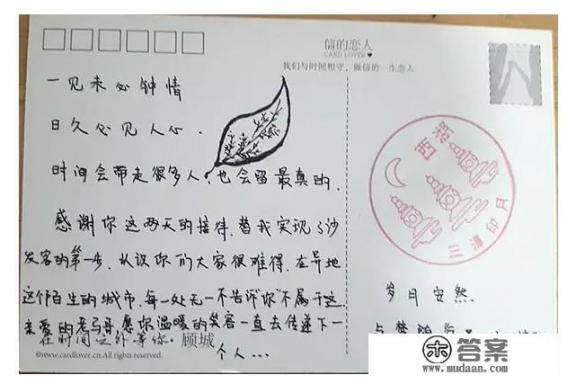 信的恋人
CARD LOVER♥
我们与时间相守，做信的一生恋人
一见未必钟情
日久必见人心.
时间会带走很多人,也会留最真的.
感谢你这两天的接待,替我实现了沙
发客的第一步,认识你们大家很难得,在异地
这个陌生的城市,每一处无一不告诉"你"不属于这.
亲爱的老马哥,愿你温暖的笑容一直去传递下一
个人...
在时间之外等你·顾城
©www.cardlover.cn.All rights reserved.
西湖
三潭印月
岁月安然.
答案
www.mudaan.com